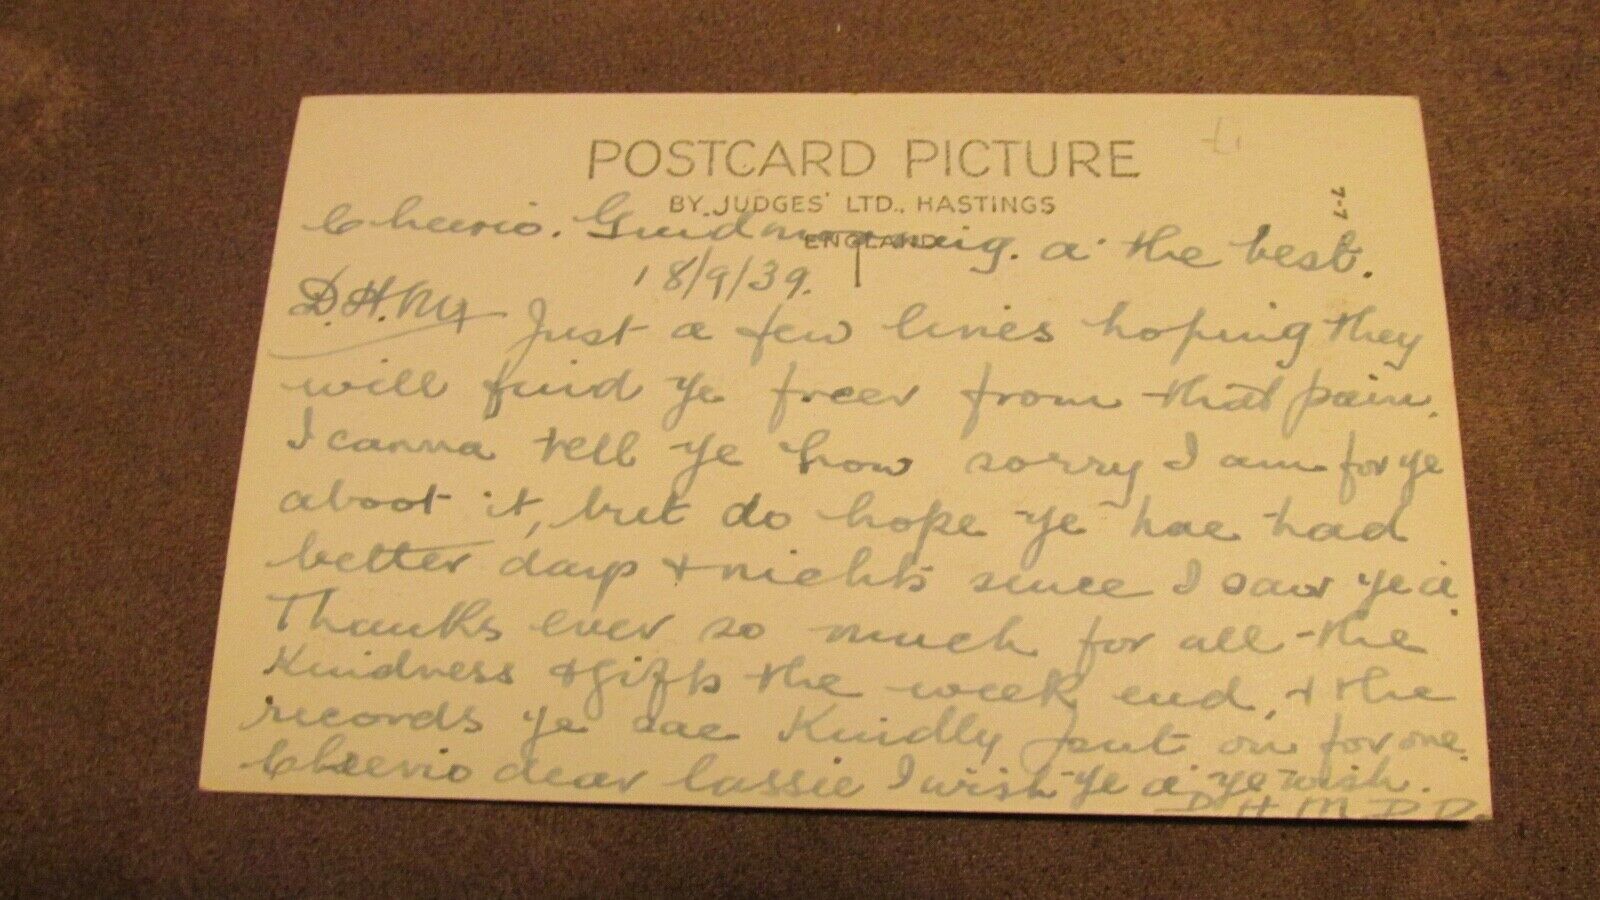 POSTCARD PICTURE
BY JUDGES' LTD., HASTINGS
ENGLAND
7-7
Cheerio. Guidmorning. a' the best.
18/9/39.
D.H.M. Just a few lines hoping they
will find ye freer from that pain.
I canna tell ye how sorry I am for ye
aboot it, but do hope ye hae had
better days + nichts since I saw ye a'.
Thanks ever so much for all the
Kindness + gifts the week end, + the
records ye sae Kindly put on for one.
Cheerio dear lassie I wish ye a' ye wish.
D H M D D